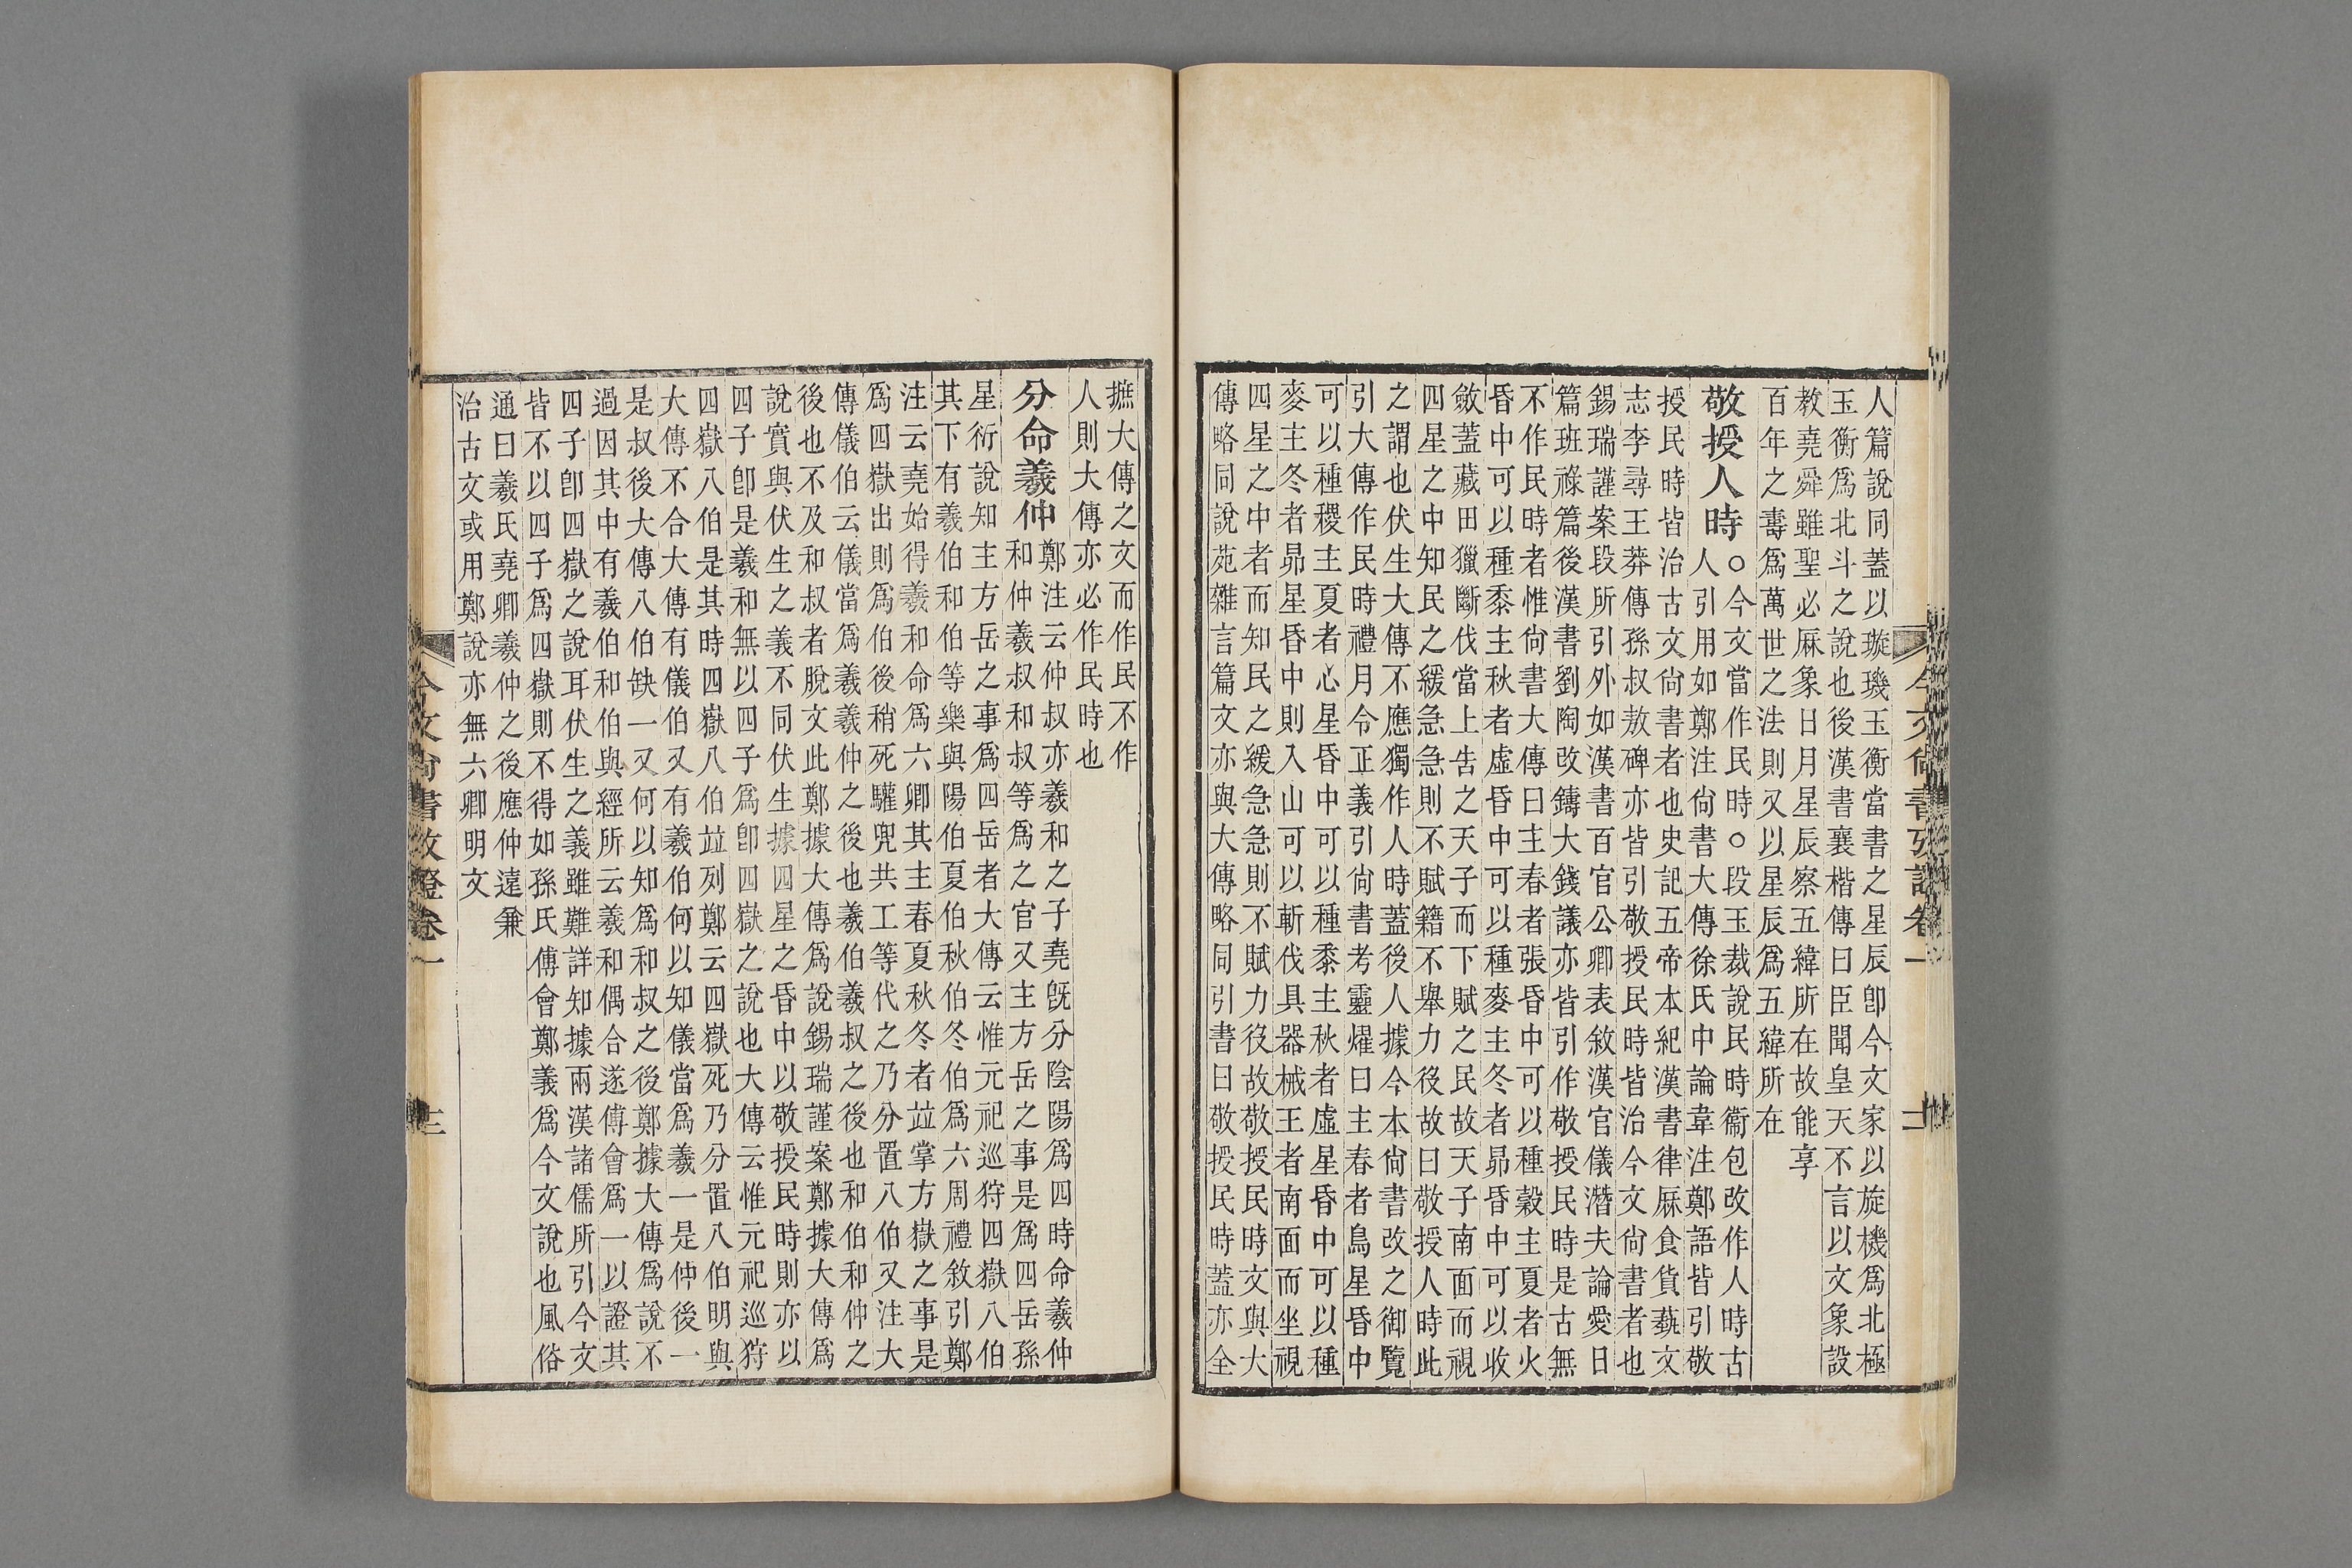 人篇說同蓋以璇璣玉衡當書之星辰卽今文家以旋機爲北極
玉衡爲北斗之說也後漢書襄楷傳曰臣聞皇天不言以文象設
教堯舜雖聖必厤象日月星辰察五緯所在故能享
百年之壽爲萬世之法則又以星辰爲五緯所在
敬授人時○今文當作民時○段玉裁說民時衞包改作人時古
人引用如鄭注尙書大傳徐氏中論韋注鄭語皆引敬
授民時皆治古文尙書者也史記五帝本紀漢書律厤食貨蓺文
志李尋王莽傳孫叔敖碑亦皆引敬授民時皆治今文尙書者也
錫瑞謹案段所引外如漢書百官公卿表敘漢官儀潛夫論愛日
篇班祿篇後漢書劉陶改鑄大錢議亦皆引作敬授民時是古無
不作民時者惟尙書大傳曰主春者張昏中可以種穀主夏者火
昏中可以種黍主秋者虛昏中可以種麥主冬者昴昏中可以收
斂蓋藏田獵斷伐當上吿之天子而下賦之民故天子南面而視
四星之中知民之緩急急則不賦籍不舉力役故曰敬授人時此
之謂也伏生大傳不應獨作人時蓋後人據今本尙書改之御覽
引大傳作民時禮月令正義引尙書考靈燿曰主春者鳥星昏中
可以種稷主夏者心星昏中可以種黍主秋者虛星昏中可以種
麥主冬者昴星昏中則入山可以斬伐具器械王者南面而坐視
四星之中者而知民之緩急急則不賦力役故敬授民時文與大
傳略同說苑雜言篇文亦與大傳略同引書曰敬授民時蓋亦全
摭大傳之文而作民不作
人則大傳亦必作民時也
分命羲仲鄭注云仲叔亦羲和之子堯旣分陰陽爲四時命羲仲
和仲羲叔和叔等爲之官又主方岳之事是爲四岳孫
星衍說知主方岳之事爲四岳者大傳云惟元祀巡狩四嶽八伯
其下有羲伯和伯等樂與陽伯夏伯秋伯冬伯爲六周禮敘引鄭
注云堯始得羲和命爲六卿其主春夏秋冬者竝掌方嶽之事是
爲四嶽出則爲伯後稍死驩兜共工等代之乃分置八伯又注大
傳儀伯云儀當爲羲羲仲之後也羲伯羲叔之後也和伯和仲之
後也不及和叔者脫文此鄭據大傳爲說錫瑞謹案鄭據大傳爲
說實與伏生之義不同伏生據四星之昏中以敬授民時則亦以
四子卽是羲和無以四子爲卽四嶽之說也大傳云惟元祀巡狩
四嶽八伯是其時四嶽八伯竝列鄭云四嶽死乃分置八伯明與
大傳不合大傳有儀伯又有羲伯何以知儀當爲羲一是仲後一
是叔後大傳八伯缺一又何以知爲和叔之後鄭據大傳爲說不
過因其中有羲伯和伯與經所云羲和偶合遂傅會爲一以證其
四子卽四嶽之說耳伏生之義雖難詳知據兩漢諸儒所引今文
皆不以四子爲四嶽則不得如孫氏傅會鄭義爲今文說也風俗
通曰羲氏堯卿羲仲之後應仲遠兼
治古文或用鄭說亦無六卿明文
今文尙書攷證卷一